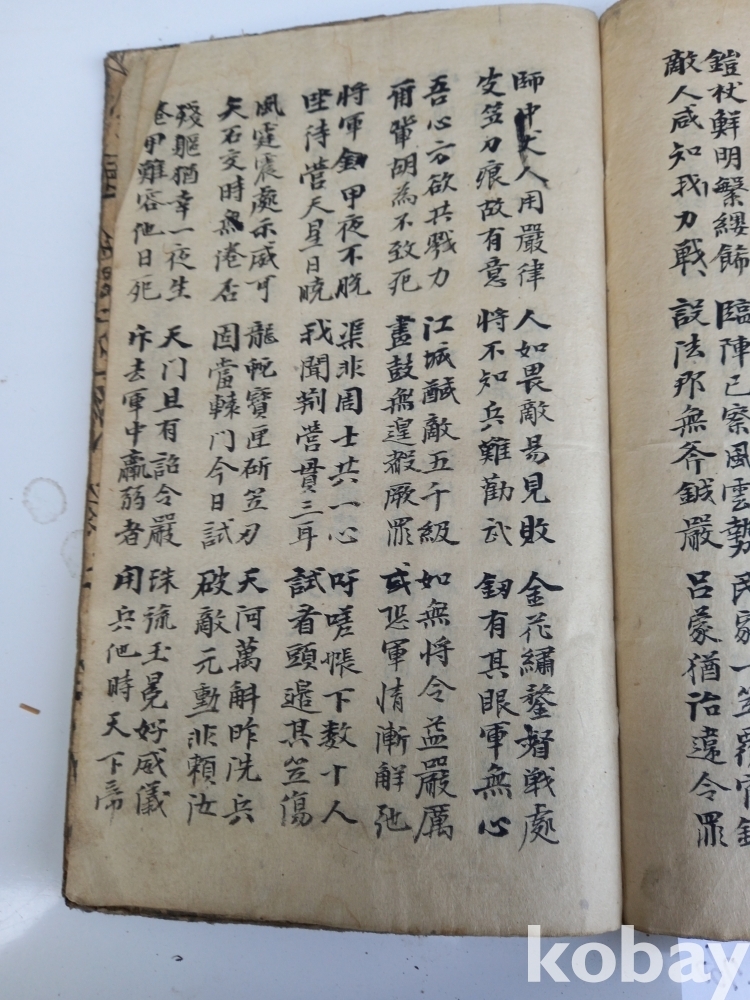 鎧杖鮮明繫纓飾 臨陣已察風雲勢 民家一笠
敵人咸知我力戰 設法那無斧鉞嚴 呂蒙猶治違令罪
師中丈人用嚴律 人如畏敵易見敗 金花繡鍪督戦處
皮笠刀痕故有意 將不知兵難勸武 釼有其眼軍無心
吾心方欲共戮力 江城馘敵五千級 如無将令益嚴厲
爾輩胡為不致死 畫鼓無遑殺厥罪 或恐軍情漸解弛
將軍釼甲夜不脫 渠非周士共一心 吁嗟帳下数十人
坐待營天星日曉 我聞荊營貫三耳 試看頭邊其笠傷
風霆震處示威可 龍蛇寶匣斫笠刃 天河萬斛昨洗兵
矢石交時無港否 固當轅門今日試 破敵元勳非頼汝
殘軀猶幸一夜生 天门且有詔令嚴 珠旒玉冕好威儀
卷甲難容他日死 去軍中羸弱者 用兵他時天下帝
kobay